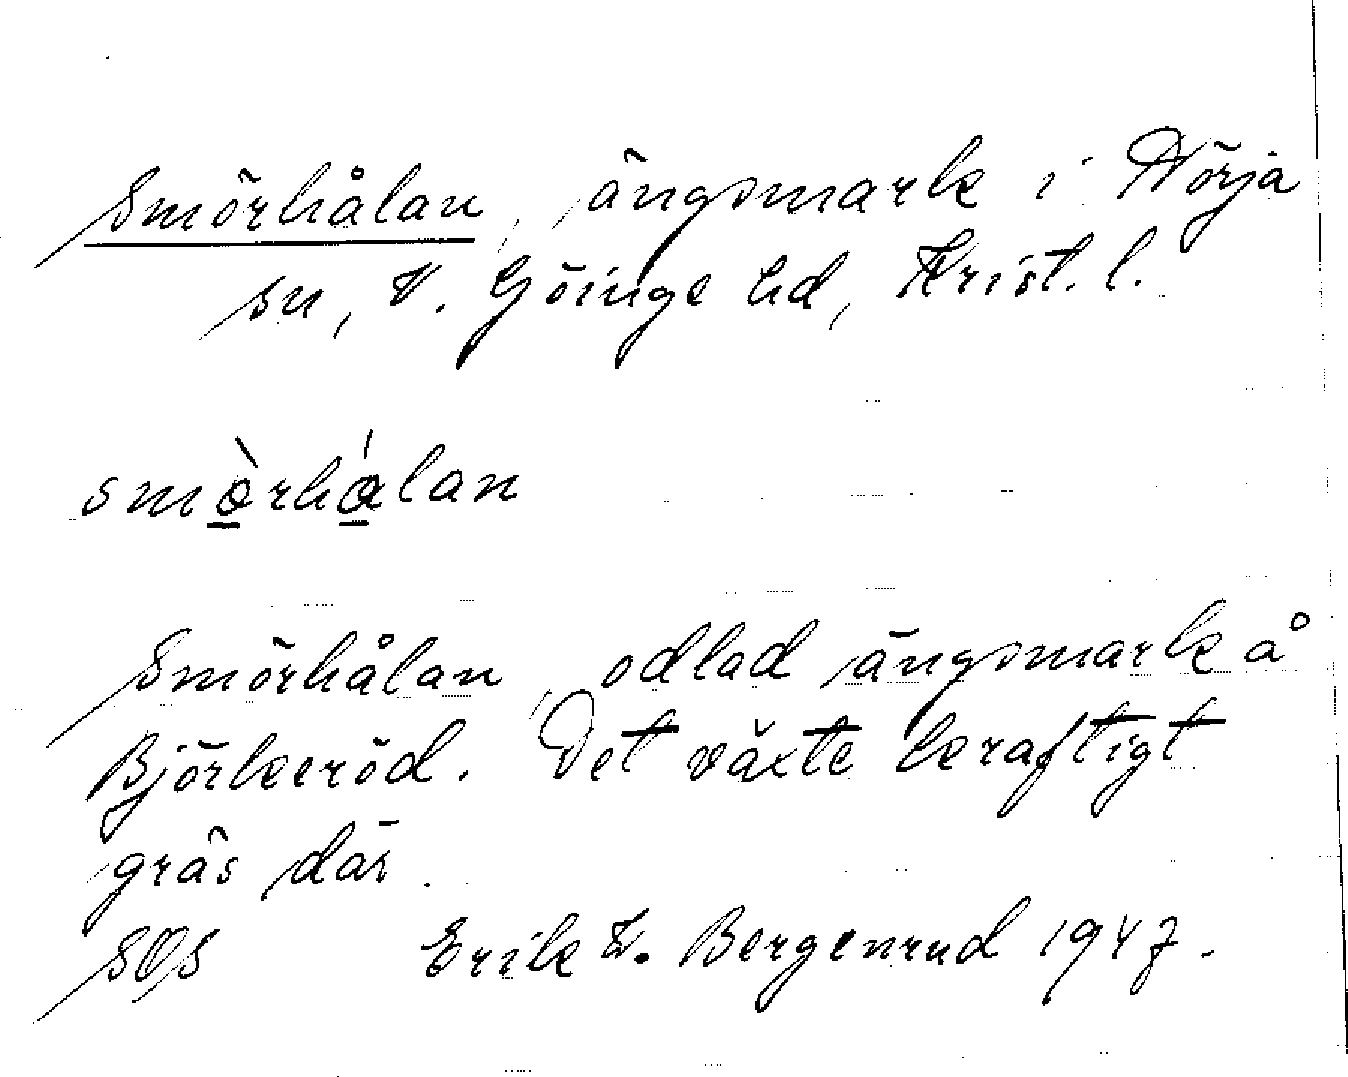 Smörhålan, ängsmark i Nörja
sn, V. Göinge hd, Krist. l.
smὰrhálan
Smörhålan, odlad ängsmark å
Björkeröd. Det växte kraftigt
gräs där.
SOS Erik W. Bergenrud 1947.